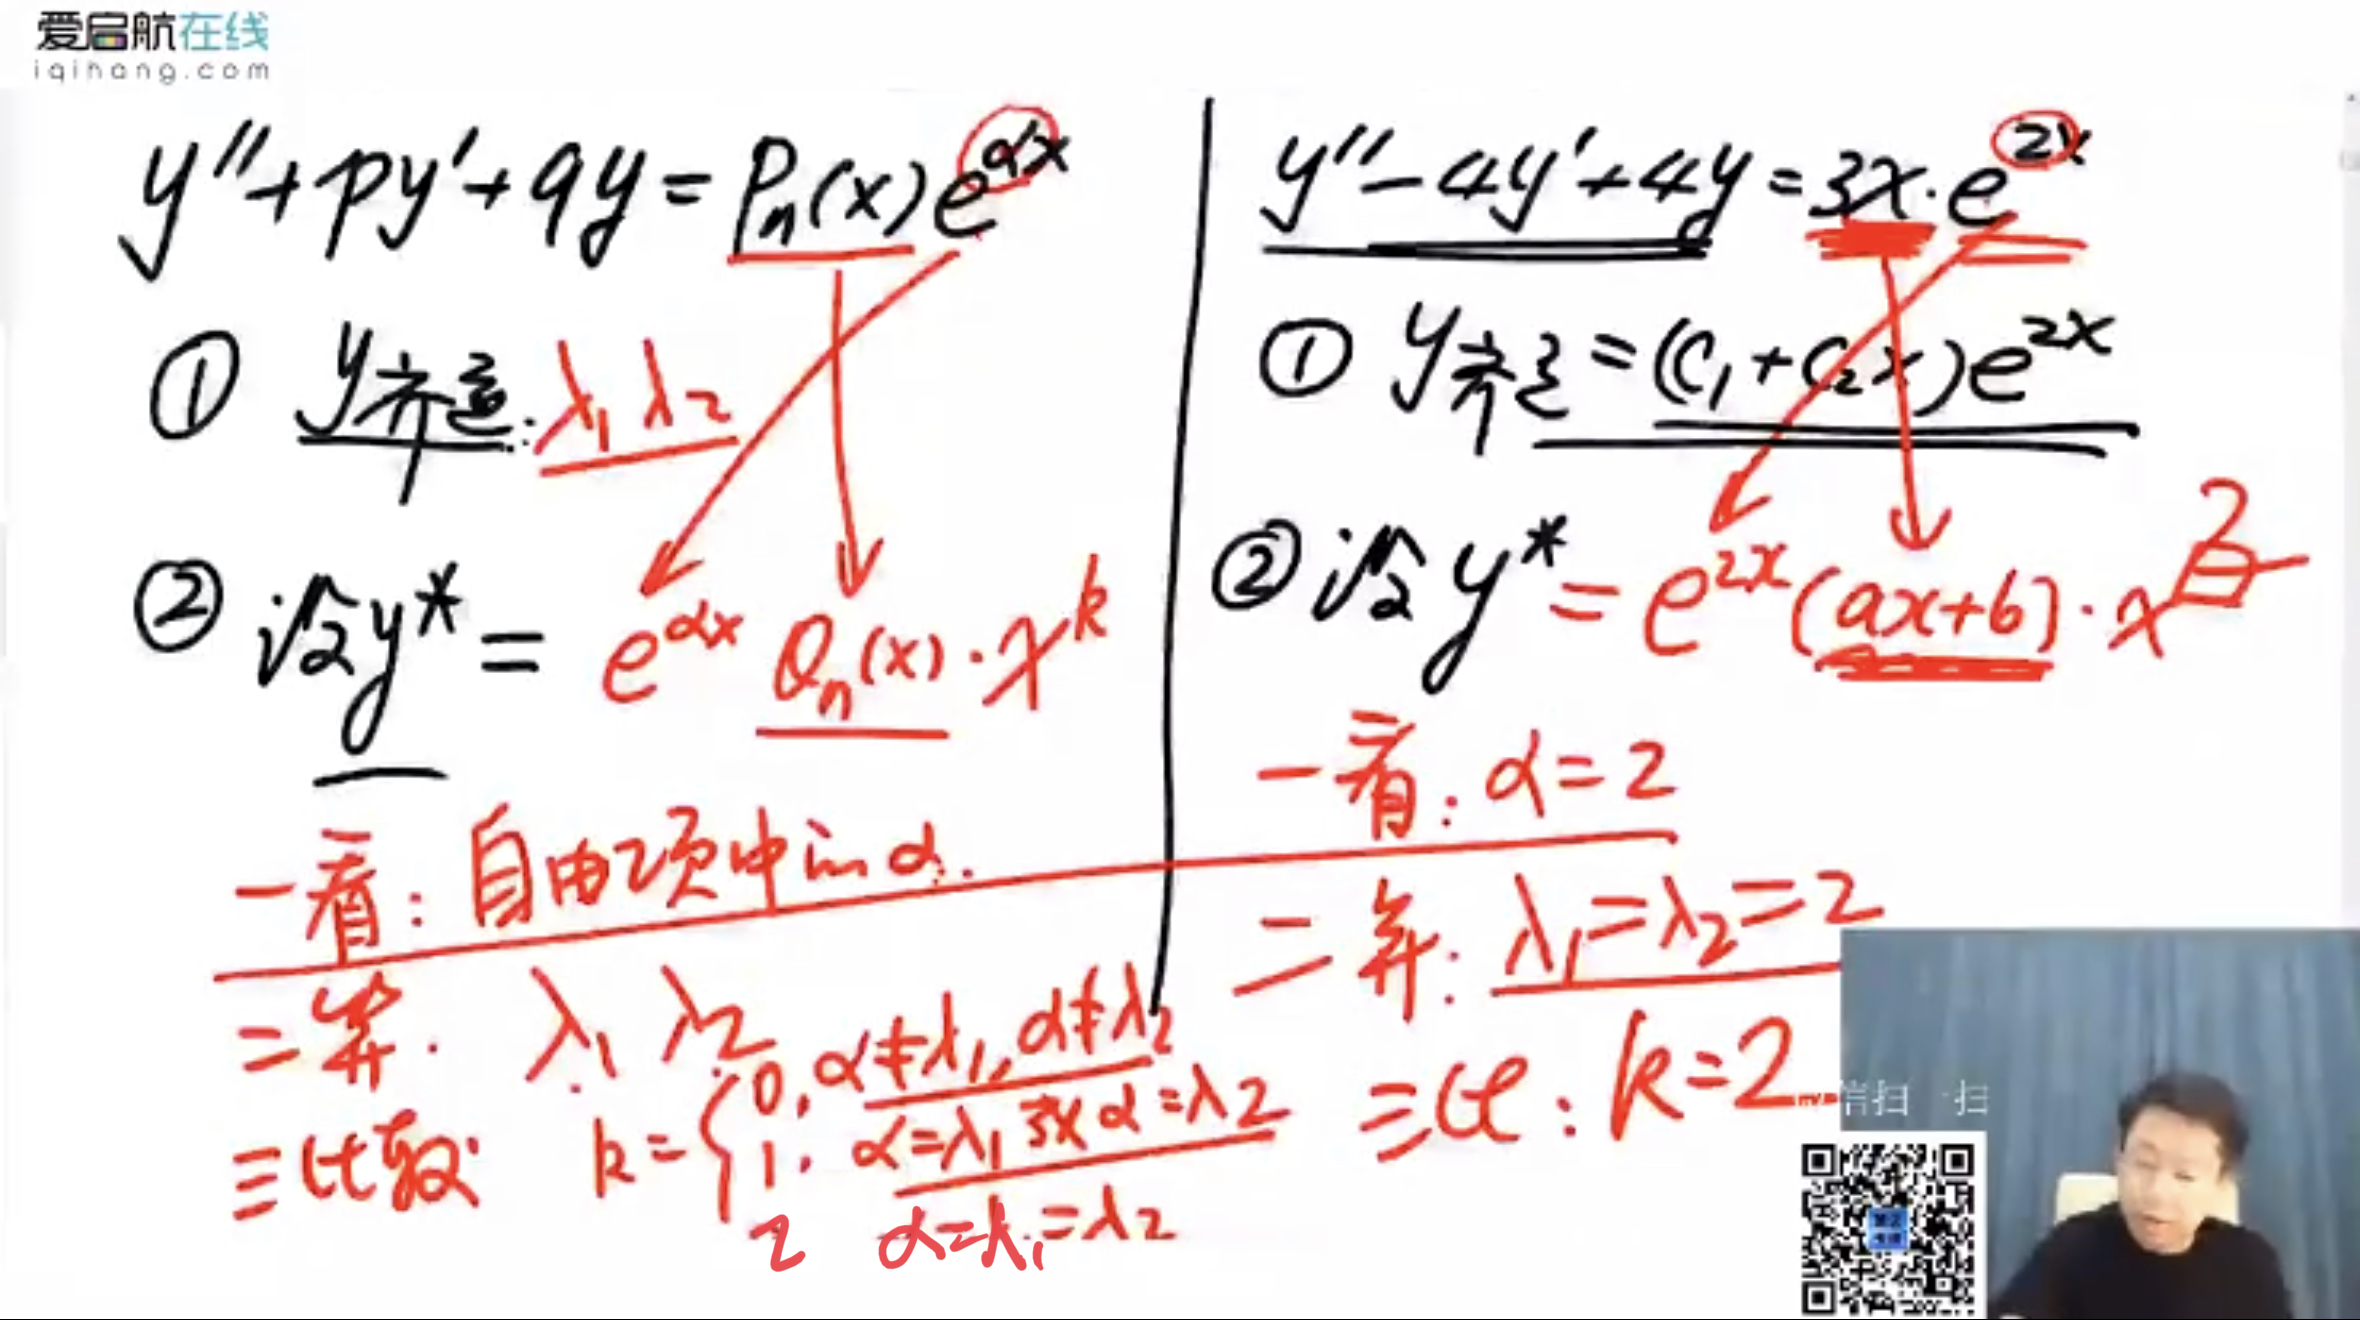 爱启航在线
iqihang.com
y''+py'+qy=Pn(x)e^αx
① y齐通: λ1 λ2
② 设y*= e^αx Qn(x)·x^k
一看: 自由项中的α.
二算. λ1 λ2
三比较 k={0, α≠λ1, α≠λ2
1. α=λ1 或 α=λ2
2 α=λ1=λ2
y''-4y'+4y=3x·e^2x
① y齐通=(C1+C2x)e^2x
② 设y*=e^2x(ax+b)·x^2
一看: α=2
二算: λ1=λ2=2
三比: k=2
信扫一扫